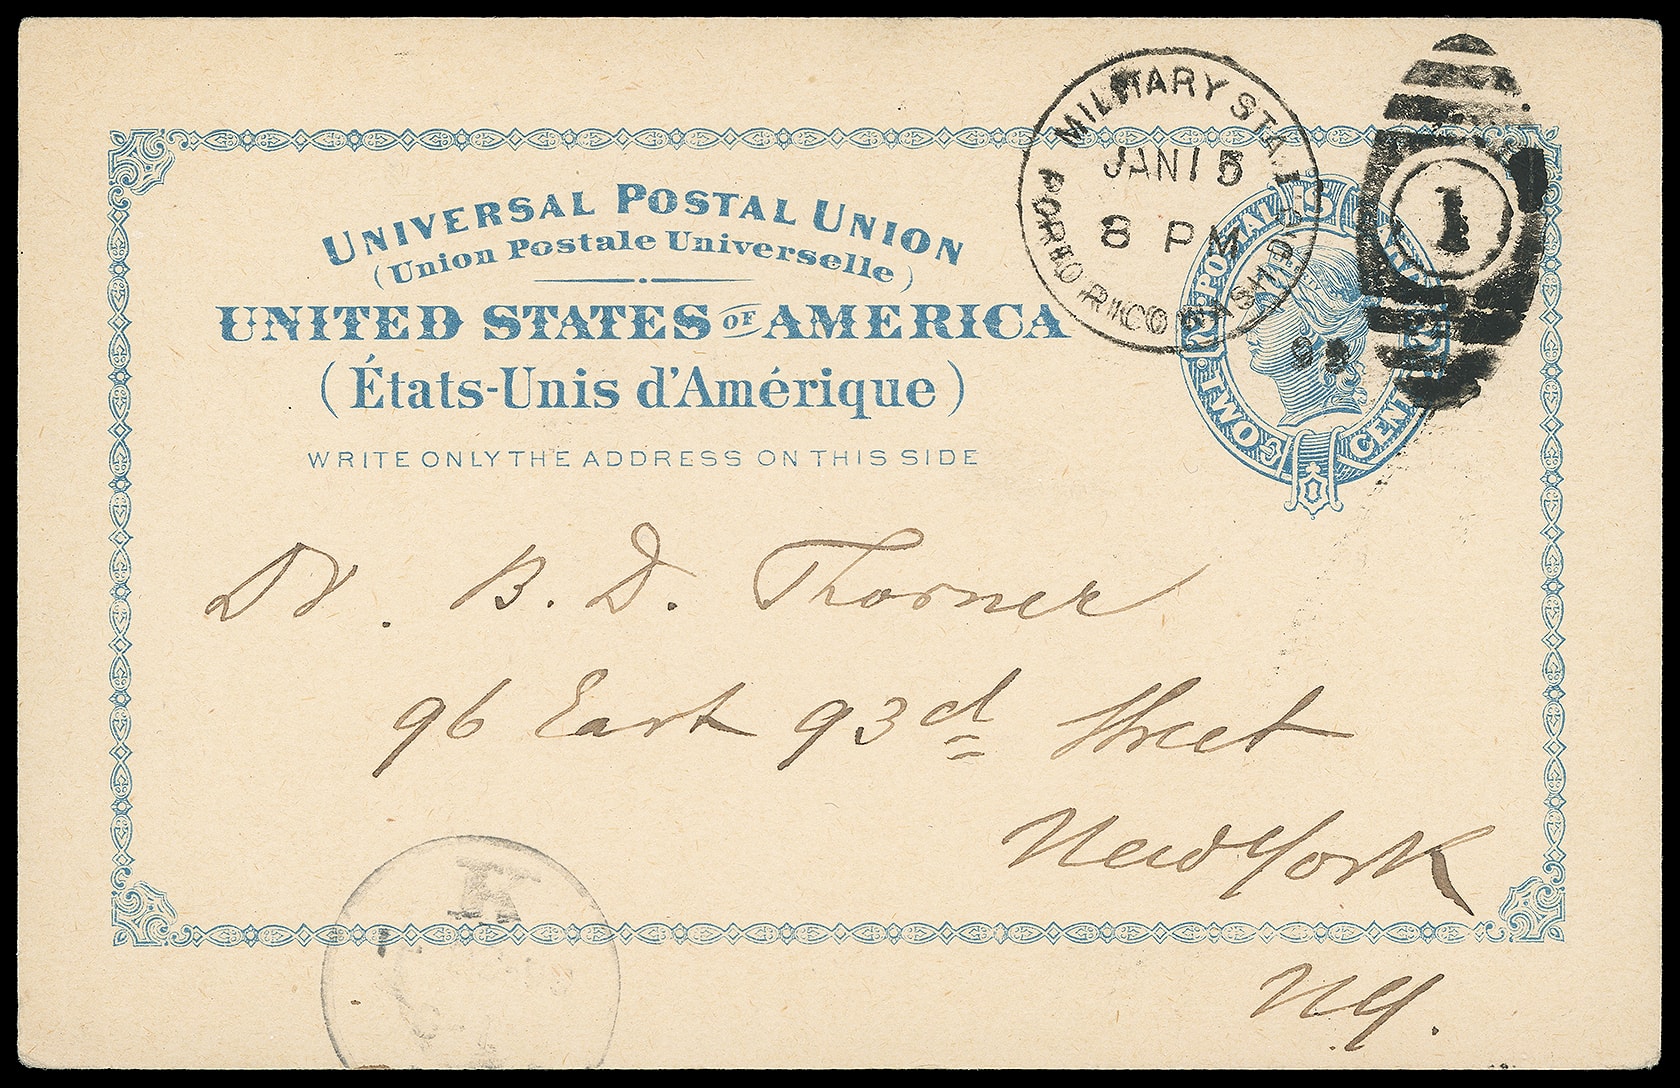 UNIVERSAL POSTAL UNION
(Union Postale Universelle)
UNITED STATES OF AMERICA
(États-Unis d'Amérique)
WRITE ONLY THE ADDRESS ON THIS SIDE
MILITARY STA.
JAN 15
8 PM
PORTO RICO
1
U.S. POSTAL CARD
TWO CENTS
2
Dr. B. D. Thorner
96 East 93d Street
New York
N.Y.